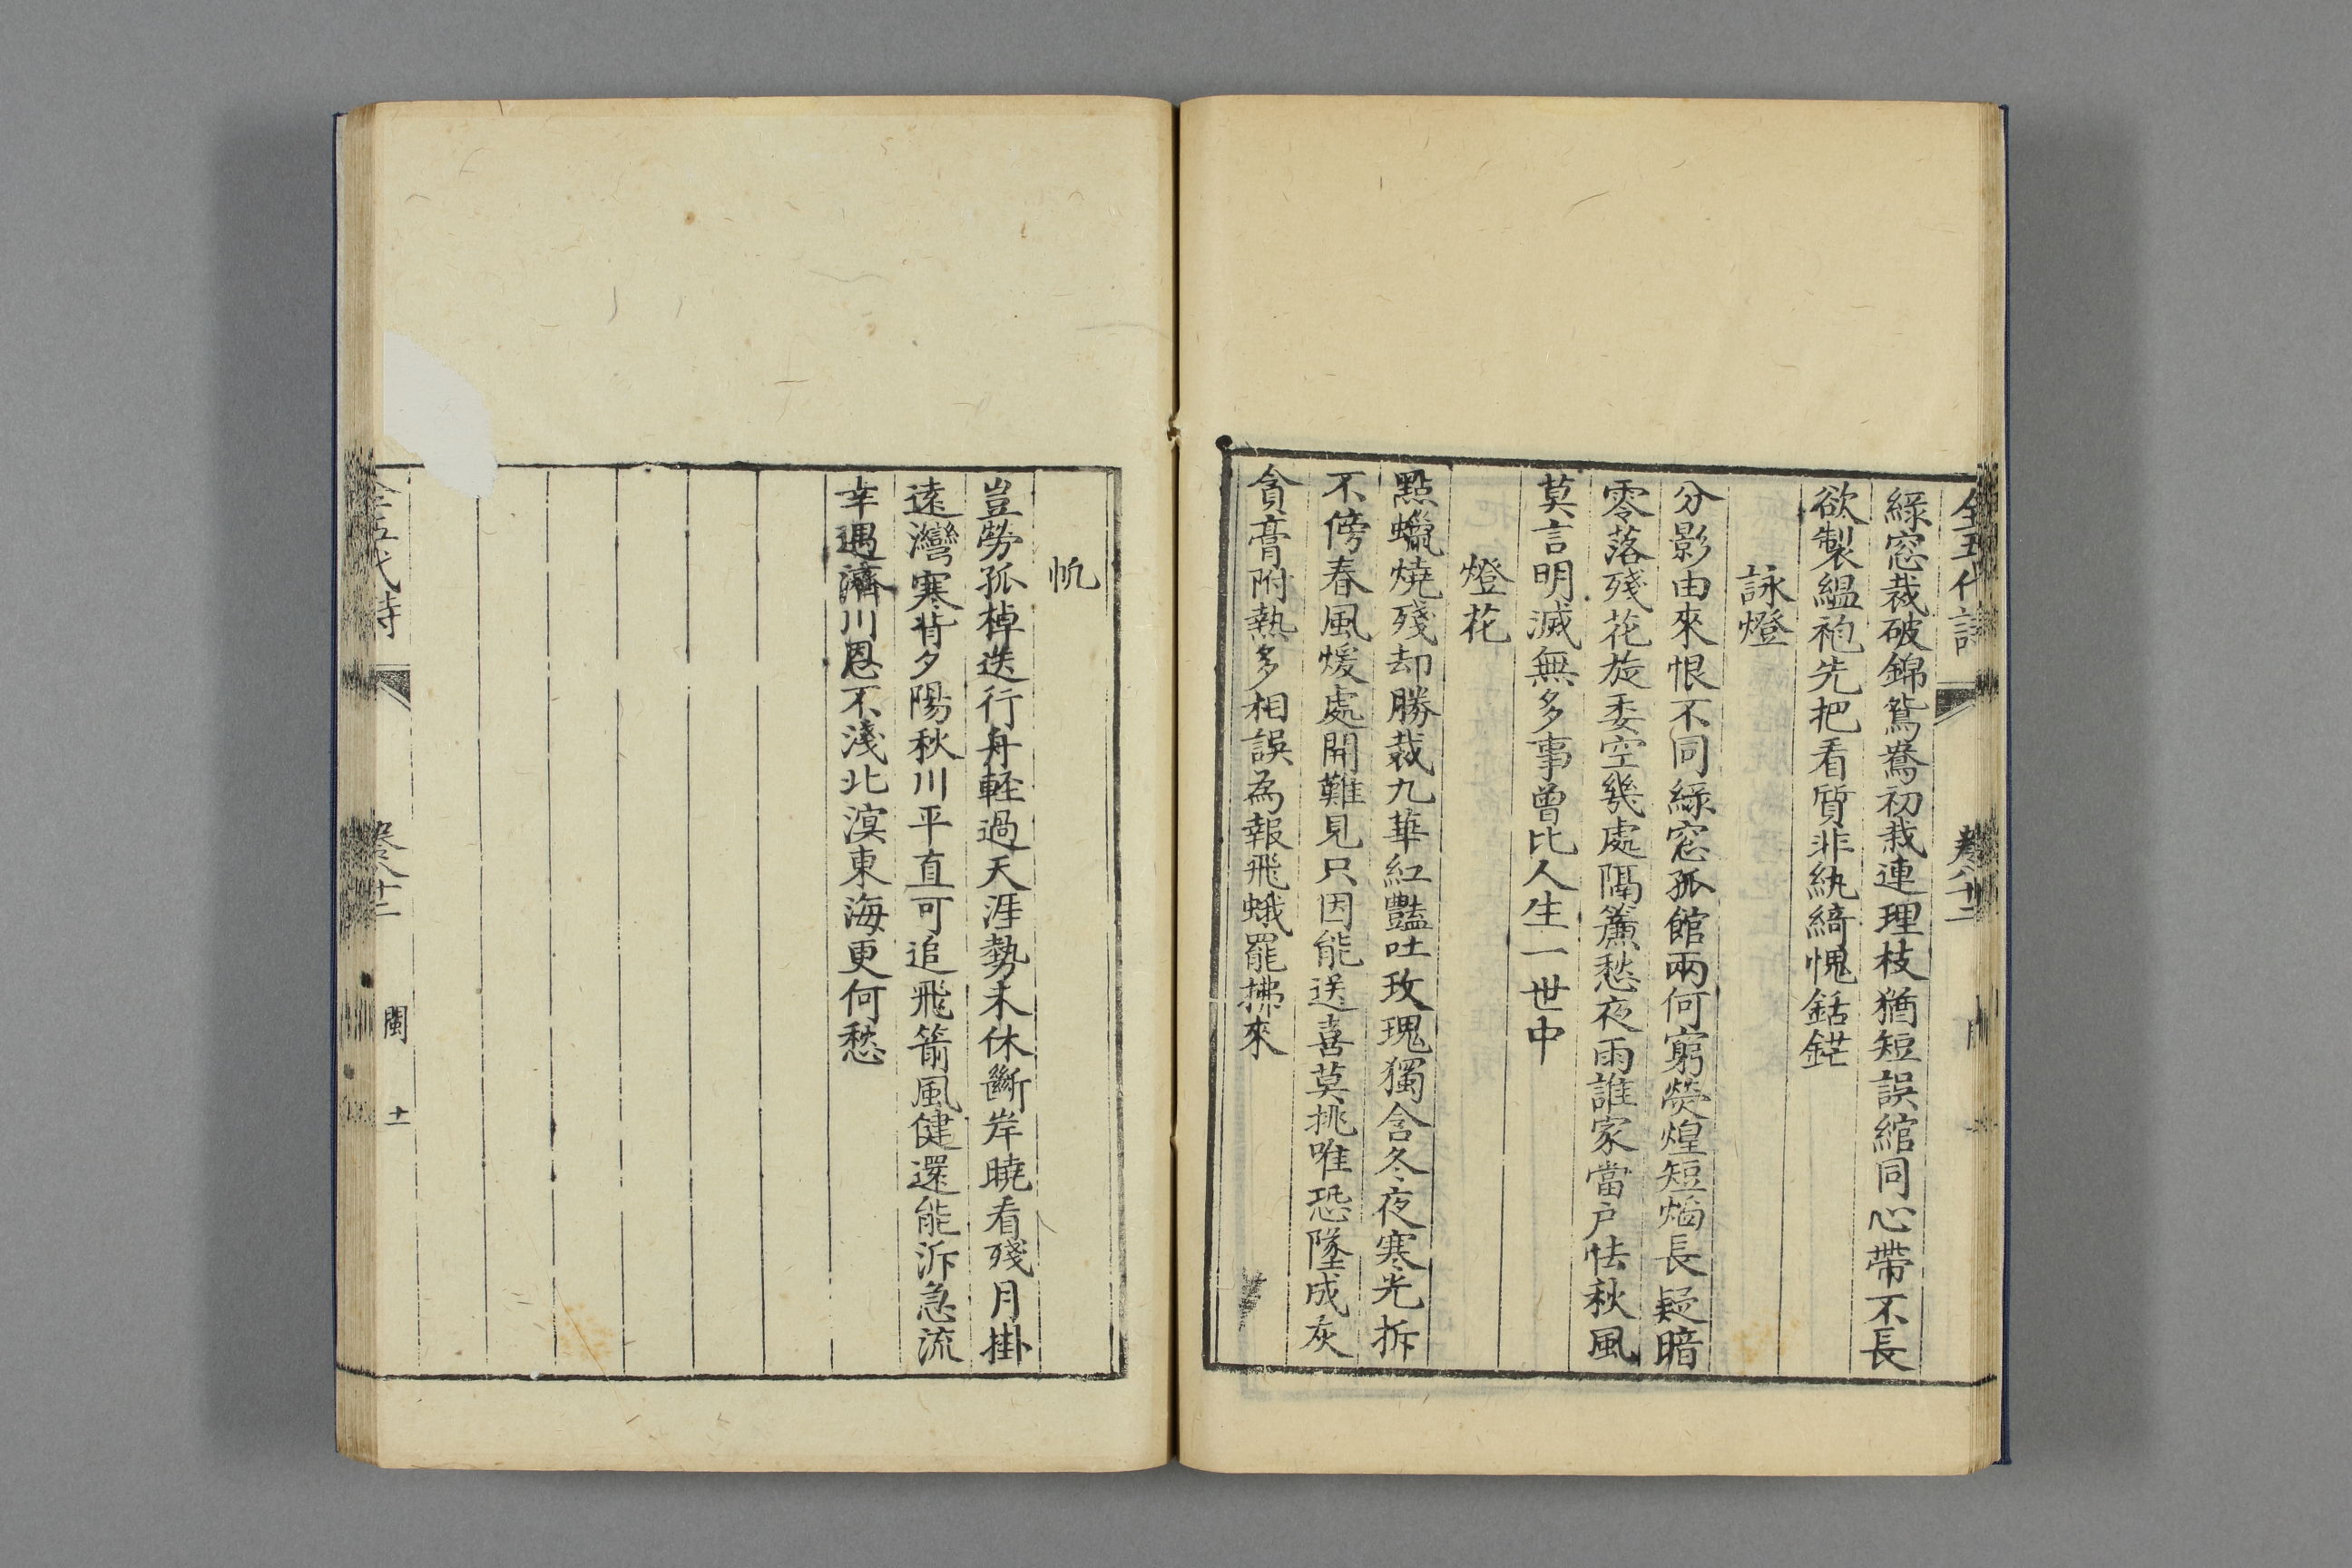 全五代詩 卷八十二
綠窓裁破錦鴛鴦初裁連理枝猶短誤綰同心帶不長
欲製縕袍先把看質非紈綺愧銛鋩
詠燈
分影由來恨不同綠窓孤館兩何窮熒煌短焰長疑暗
零落殘花旋委空幾處隔簾愁夜雨誰家當戶怯秋風
莫言明滅無多事曾比人生一世中
燈花
點蠟燒殘却勝裁九華紅豔吐玫瑰獨含冬夜寒光拆
不傍春風煖處開難見只因能送喜莫挑唯恐墜成灰
貪膏附熱多相誤為報飛蛾罷拂來
帆
豈勞孤棹送行舟輕過天涯勢未休斷岸曉看殘月掛
遠灣寒背夕陽秋川平直可追飛箭風健還能泝急流
幸遇濟川恩不淺北溟東海更何愁
全五代詩 卷八十二 閩 十一